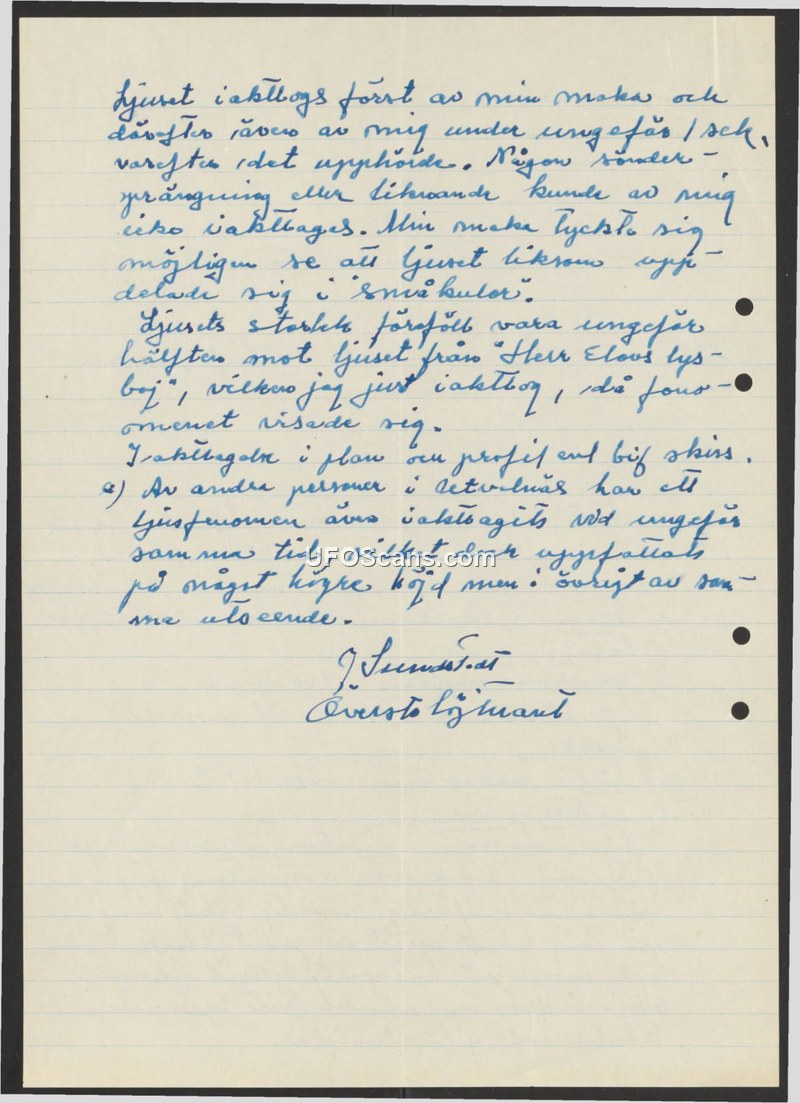 Ljuset iakttogs först av min maka och
därefter även av mig under ungefär 1 sek,
varefter det upphörde. Någon sönder-
sprängning eller liknande kunde av mig
icke iakttagas. Min maka tyckte sig
möjligen se att ljuset liksom upp-
delade sig i "småkulor".
Ljusets styrka föreföll vara ungefär
hälften mot ljuset från "Herr Elovs lys-
boj", vilken jag just iakttog, då feno-
menet visade sig.
Iakttagelse i plan och profil enl bif skiss.
e) Av andra personer i Utvalnäs har ett
ljusfenomen även iakttagits vid ungefär
samma tid, vilket har uppfattats
på något högre höjd men i övrigt av sam-
ma utseende.
J Sundstedt
Överstelöjtnant
UFOScans.com